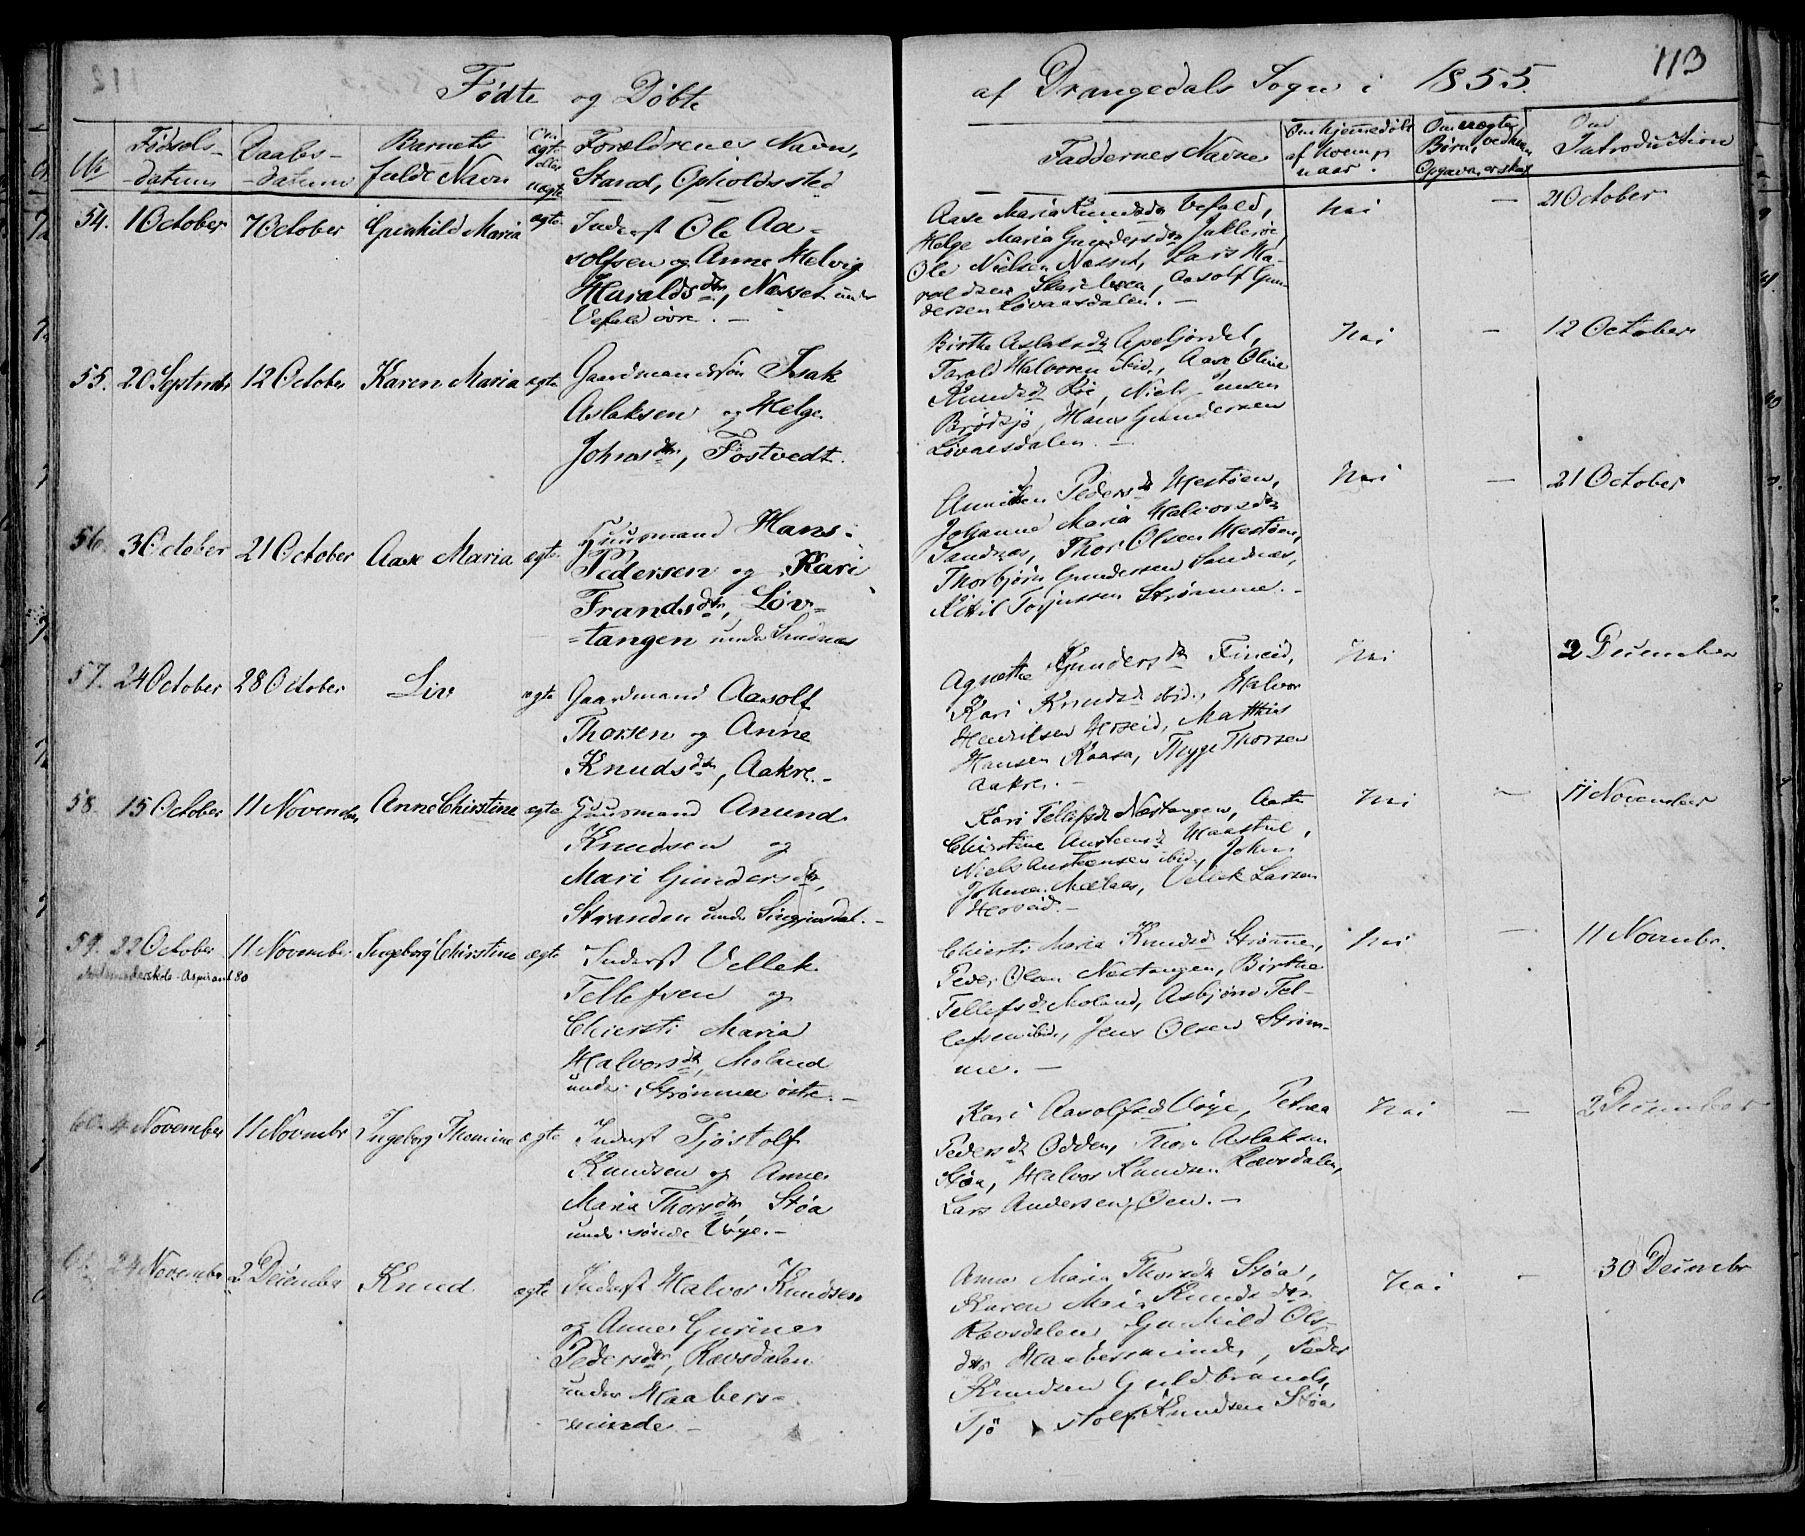 Fødte og Døbte
af Drangedals Sogn i 1855.
113
No
Fødsels-
datum
Daabs-
datum
Barnets
fulde Navn
Om
ægte
eller
uægte
Forældrenes Navn,
Stand, Opholdssted
Faddernes Navne
Om hjemmedøbt
af hvem,
naar.
Om uægte
Børn
Om
Introduction
54. 1 October 7 October Gunhild Maria ægte
Inderst Ole Aa-
solfsen og Anne Helvig
Haraldsdtr, Næsset under
Vefald øvre. -
Aase Maria Knudsdtr Vefald,
Helge Maria Gundersdtr
Ole Nielsen Næsset, Lars Ha-
raldsen Aasolf Gun-
dersen Løvaasdalen. -
Nei - 21 October
55. 20 Septmbr 12 October Karen Maria ægte
Gaardmandssøn Isak
Aslaksen og Helge
Johnsdtr, Tostvedt.
Birthe Aslaksdtr
Tarald Halvorsen Aase Oline
Knudsdtr Niels Jensen
Brødsjø, Hans Gundersen
Løvaasdalen. -
Nei - 12 October
56. 3 October 21 October Aase Maria ægte
Huusmand Hans
Pedersen og Kari
Frandsdtr, Løv-
=tangen under Sandnæs
Pedersdtr Westøen,
Johanne Maria Halvorsdtr
Sandnæs, Thor Olsen Westøen,
Thorbjørn Gundersen Sandnæs,
Kittil Torjussen Strømme. -
Nei - 21 October
57. 24 October 28 October Liv ægte
Gaardmand Aasolf
Thorsen og Anne
Knudsdtr, Aakre. -
Agnethe Gundersdtr
Kari Knudsdtr ibid., Halvor
Henriksen Herseid, Matthias
Hansen Kaasa, Thygge Thorsen
Aakre. -
Nei 2 December
58. 15 October 11 November Anne Chirstine ægte
Huusmand Anund
Knudsen og
Mari Gundersdtr,
Stranden under -
Kari Tellefsdtr Næstangen, Aaste
Chirstine Austensdtr Haastul,
Niels Austensen ibid, John
Johnsen Vellek Larsen
Herseid. -
Nei - 11 November
59. 22 October 11 November Ingeborg Chirstine ægte
Aspirant 80
Inderst Vellek
Tellefsen og
Chiersti Maria
Halvorsdtr, Moland
under Strømme østre. -
Chiersti Maria Knudsd Strømme,
Peder Olsen Næstangen, Birthe
Tellefsdtr Moland, Asbjørn Tel-
lefsen ibid., Jens Olsen Strøm-
me. -
Nei - 11 Novembr.
60. 4 November 11 Novembr Ingeborg Thomine ægte
Inderst Tjøstolf
Knudsen og Anne
Maria Thorsdtr, Støa
under søndre Voje. -
Kari Aasolfsd Voje, Petrea
Pedersdtr Odden, Thor Aslaksen
Støa, Halvor Knudsen Rævsdalen,
Lars Andersen Øen. -
Nei - 2 December
61. 24 Novembr 2 Decembr Knud ægte
Inderst Halvor Knudsen
og Anne Gurine
Pedersdtr, Rævsdalen
under Haabers-
minde -
Anne Maria Thorsdtr Støa,
Karen Mari Knudsdtr
Rævsdalen Gunhild Ols-
dtr Haabersminde, Peder
Knudsen Guldbrands,
Tjø stolf Knudsen Støa
Nei - 30 Decembr